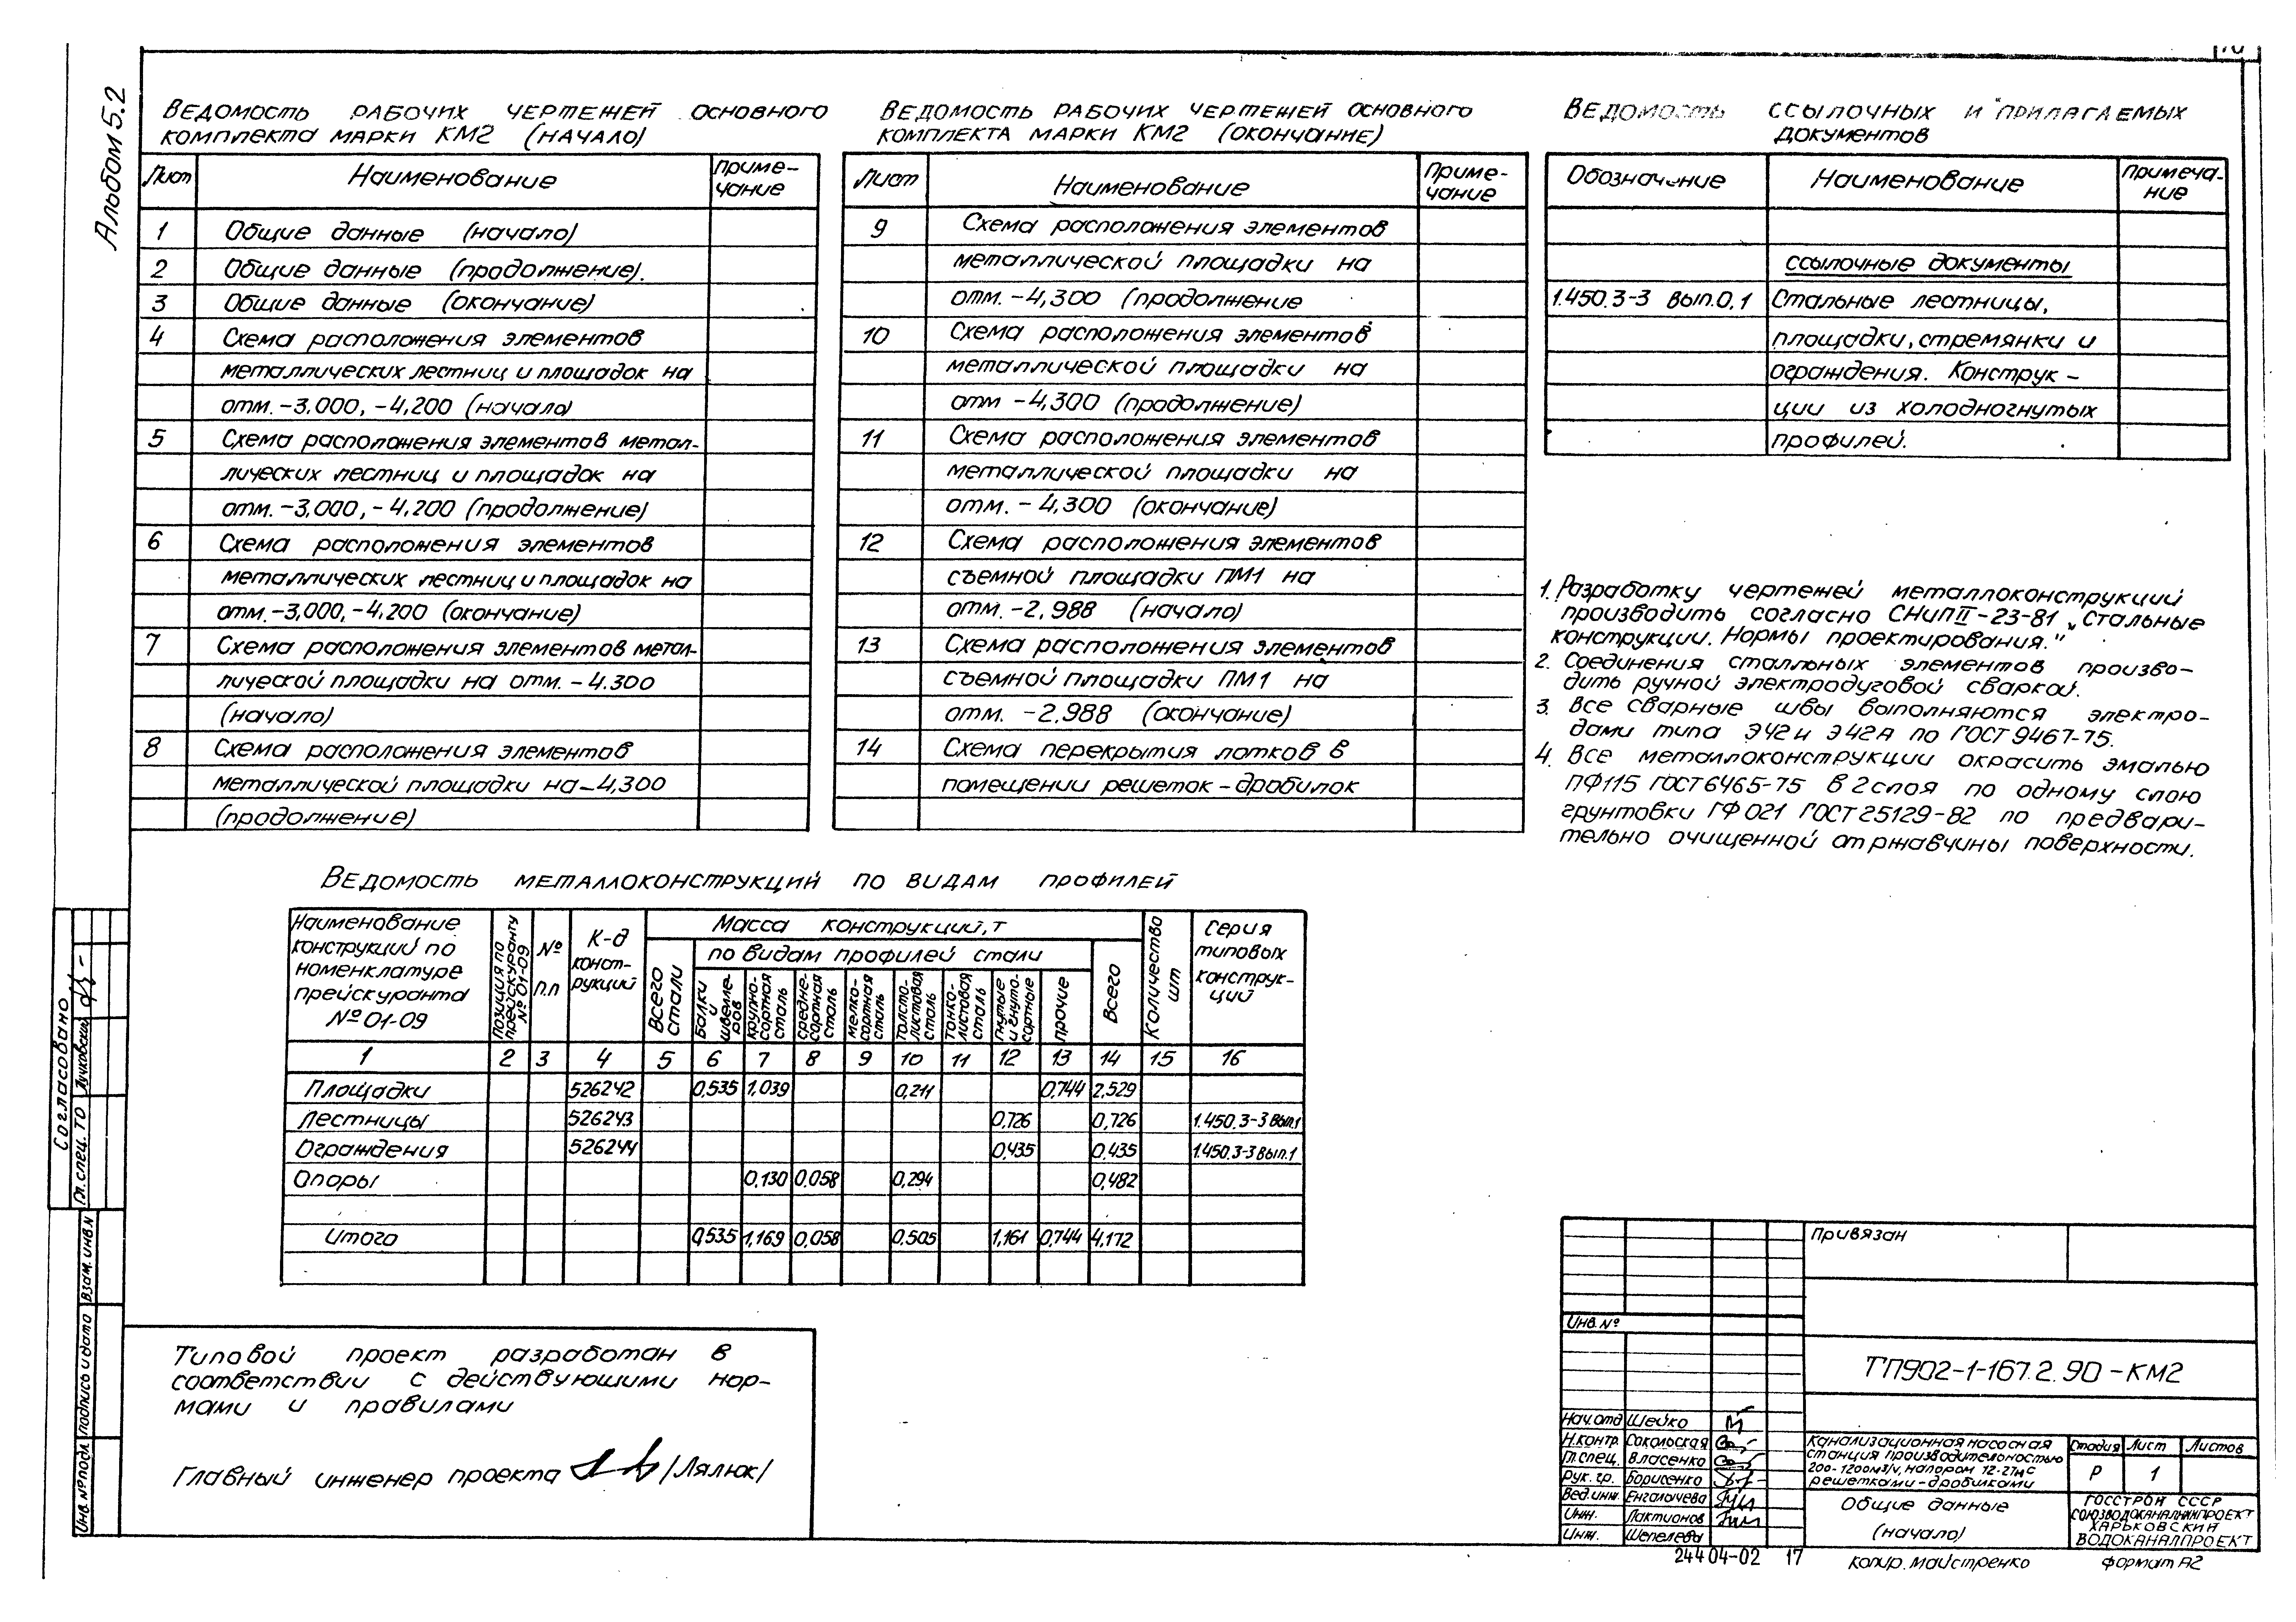 Альбом 5.2
Ведомость рабочих чертежей основного
комплекта марки КМ2 (начало)
Лист
Наименование
Приме-
чание
1 Общие данные (начало)
2 Общие данные (продолжение).
3 Общие данные (окончание)
4 Схема расположения элементов
металлических лестниц и площадок на
отм. -3,000, -4,200 (начало)
5 Схема расположения элементов метал-
лических лестниц и площадок на
отм. -3,000, -4,200 (продолжение)
6 Схема расположения элементов
металлических лестниц и площадок на
отм. -3,000, -4,200 (окончание)
7 Схема расположения элементов метал-
лической площадки на отм. -4.300
(начало)
8 Схема расположения элементов
металлической площадки на -4,300
(продолжение)
Ведомость рабочих чертежей основного
комплекта марки КМ2 (окончание)
Лист
Наименование
Приме-
чание
9 Схема расположения элементов
металлической площадки на
отм. -4,300 (продолжение
10 Схема расположения элементов
металлической площадки на
отм -4,300 (продолжение)
11 Схема расположения элементов
металлической площадки на
отм. -4,300 (окончание)
12 Схема расположения элементов
съемной площадки ПМ1 на
отм. -2,988 (начало)
13 Схема расположения элементов
съемной площадки ПМ1 на
отм. -2.988 (окончание)
14 Схема перекрытия лотков в
помещении решеток-дробилок
Ведомость ссылочных и прилагаемых
документов
Обозначение
Наименование
Примеча-
ние
ссылочные документы
1.450.3-3 вып.0,1 Стальные лестницы,
площадки, стремянки и
ограждения. Конструк-
ции из холодногнутых
профилей.
1. Разработку чертежей металлоконструкций
производить согласно СНиП II-23-81 „Стальные
конструкции. Нормы проектирования."
2. Соединения сталльных элементов произво-
дить ручной электродуговой сваркой.
3. Все сварные швы выполняются электро-
дами типа Э42 и Э42А по ГОСТ 9467-75.
4. Все металлоконструкции окрасить эмалью
ПФ115 ГОСТ 6465-75 в 2 слоя по одному слою
грунтовки ГФ 021 ГОСТ 25129-82 по предвари-
тельно очищенной от ржавчины поверхности.
Ведомость металлоконструкций по видам профилей
Наименование
конструкций по
номенклатуре
прейскуранта
№ 01-09
Позиция по
прейскуранту
№ 01-09
№
п.п
К-д
конст-
рукций
Масса конструкций, т
Всего
стали
по видам профилей стали
Балки
и
швелле-
ров
крупно-
сортная
сталь
средне-
сортная
сталь
мелко-
сортная
сталь
толсто-
листовая
сталь
тонко-
листовая
сталь
гнутые
и гнуто-
сортные
прочие
Всего
Количество
шт
Серия
типовых
конструк-
ций
1 2 3 4 5 6 7 8 9 10 11 12 13 14 15 16
Площадки 526242 0,535 1,039 0,211 0,744 2,529
Лестницы 526243 0,726 0,726 1.450.3-3 Вып.1
Ограждения 526244 0,435 0,435 1.450.3-3 Вып.1
Опоры 0,130 0,058 0,294 0,482
Итого 0,535 1,169 0,058 0,505 1,161 0,744 4,172
Типовой проект разработан в
соответствии с действующими нор-
мами и правилами
Главный инженер проекта /Лялюк/
Согласовано
Гл. спец. ТО Лучковский
Взам. инв. N
Подпись и дата
Инв. № подл.
Привязан
Инв. №
ТП902-1-167.2.90-КМ2
Нач. отд Шейко
Н.контр. Сокольская
Гл.спец. Власенко
Рук. гр. Борисенко
Вед.инж. Енгалычева
Инж. Лактионов
Инж. Шепелева
Канализационная насосная
станция производительностью
200-1200м3/ч, напором 12-27м с
решетками-дробилками
Стадия Лист Листов
Р 1
Общие данные
(начало)
ГОССТРОЙ СССР
СОЮЗВОДОКАНАЛНИИПРОЕКТ
ХАРЬКОВСКИЙ
ВОДОКАНАЛПРОЕКТ
24404-02 17
копир. Майстренко
формат А2